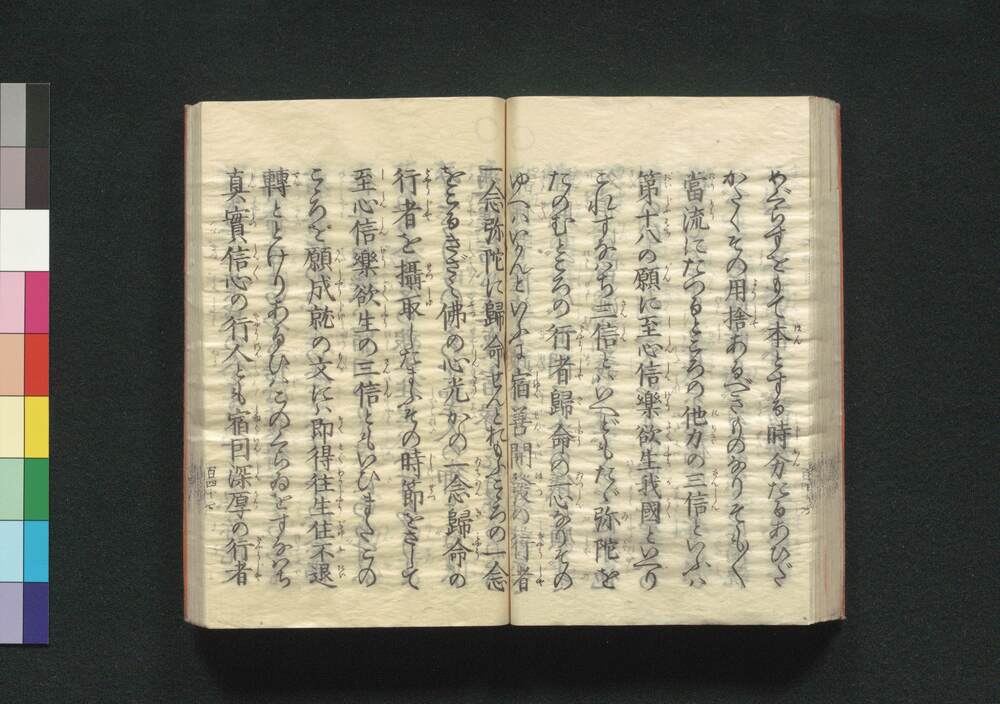 めぐらすをもて本とする時分たるあひだ
かたくその用捨あるべきものなりそも〳〵
當流にたつるところの他力の三信といふハ
第十八の願に至心信樂欲生我國といへり
これすなハち三信とハいへどもたゞ弥陀を
たのむところの行者歸命の一心なりその
ゆへハいかんといふに宿善開發の行者
一念弥陀に歸命せんとおもふこゝろの一念
をこるきざミ佛の心光かの一念歸命の
行者を攝取したまふその時節をさして
至心信樂欲生の三信ともいひまたこの
こゝろを願成就の文にハ即得往生住不退
轉ととけりあるひハこのくらゐをすなハち
真實信心の行人とも宿因深厚の行者